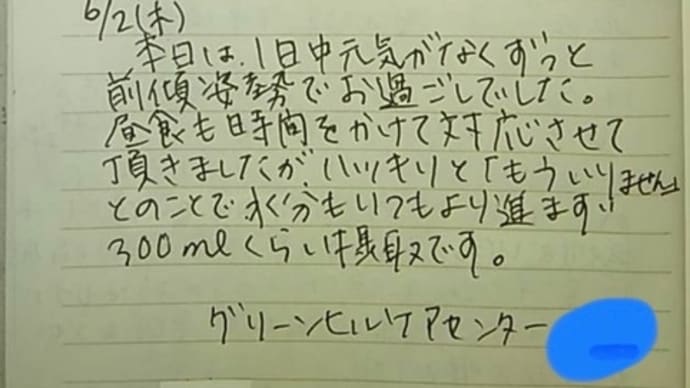 6/2(木)
本日は、1日中元気がなくずっと
前傾姿勢でお過ごしでした。
昼食も時間をかけて対応させて
頂きましたが、ハッキリと「もういりません」
とのことで水分もいつもより進まず、
300mlくらい摂取です。
グリーンヒルケアセンター